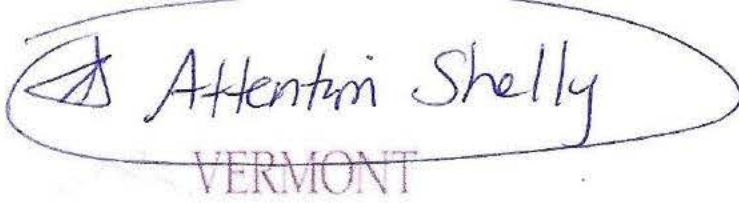 Attention Shelly
VERMONT